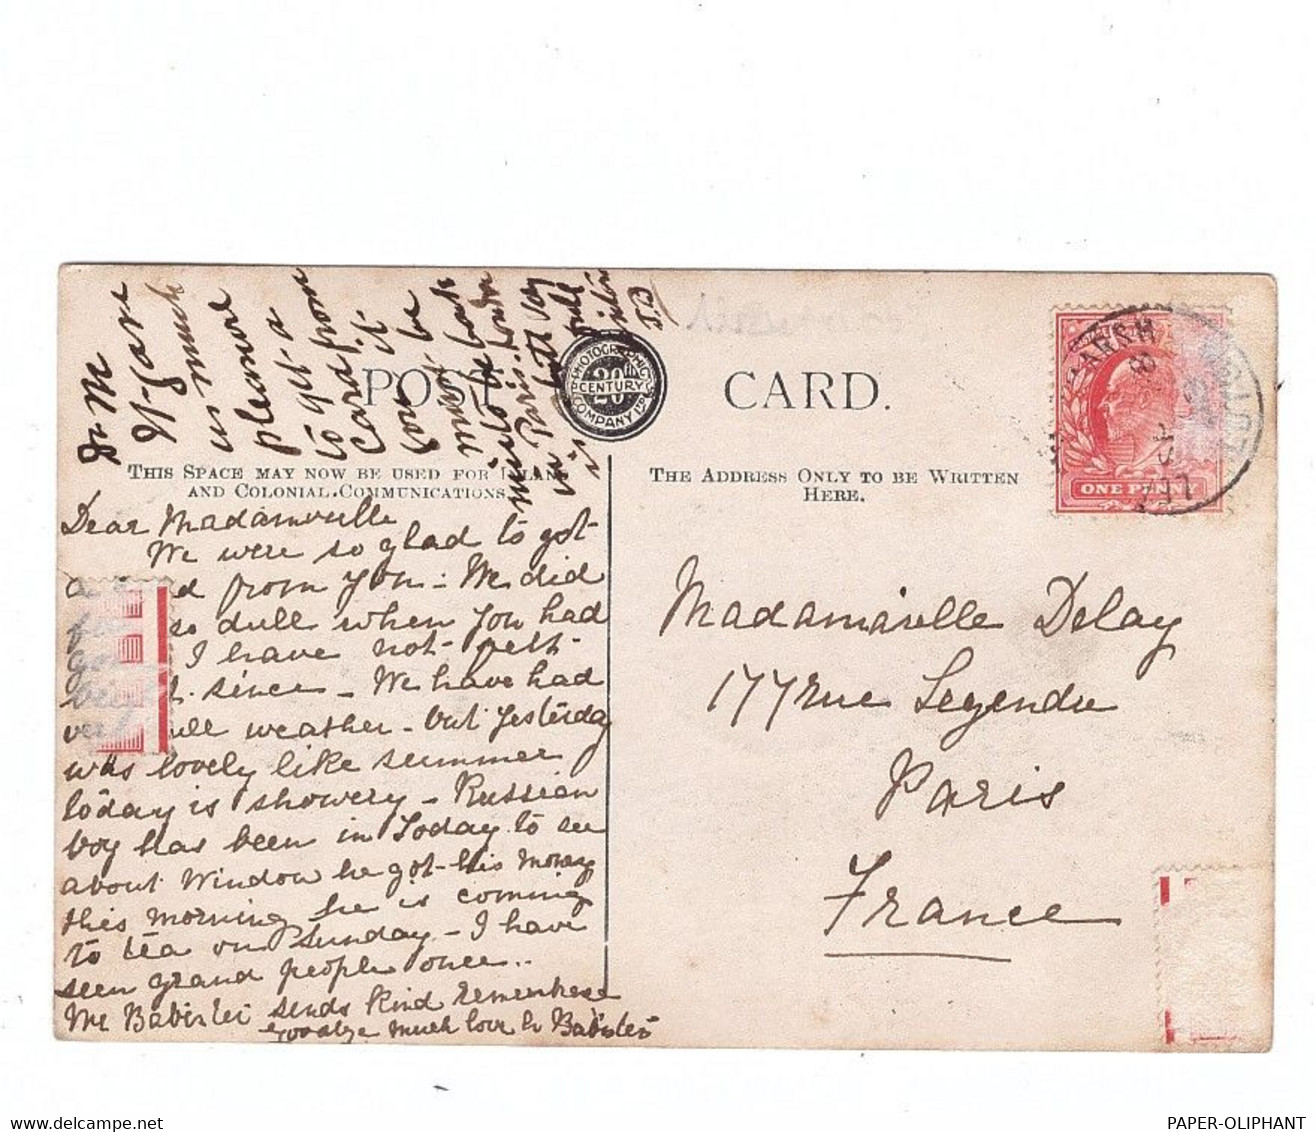 Dr M
It gave
us much
pleasure
to get a
card from
you it
must be
nice to be back
in Paris. London
is both very
dull
J.B
POST CARD.
PHOTOGRAPHIC
20th
CENTURY
COMPANY LTD
THIS SPACE MAY NOW BE USED FOR INLAND
AND COLONIAL COMMUNICATIONS.
THE ADDRESS ONLY TO BE WRITTEN
HERE.
ONE PENNY
Dear Madamoiselle
We were so glad to got
a card from you - We did
so dull when you had
I have not felt
since - We have had
dull weather - but yesterday
was lovely like summer
today is showery - Russian
boy has been in today to see
about window he got his money
this morning he is coming
to tea on Sunday - I have
seen grand people once..
Mr Babister sends kind remembrse
goodbye much love Babister
Madamiselle Delay
177 rue Legendre
Paris
France
PAPER-OLIPHANT